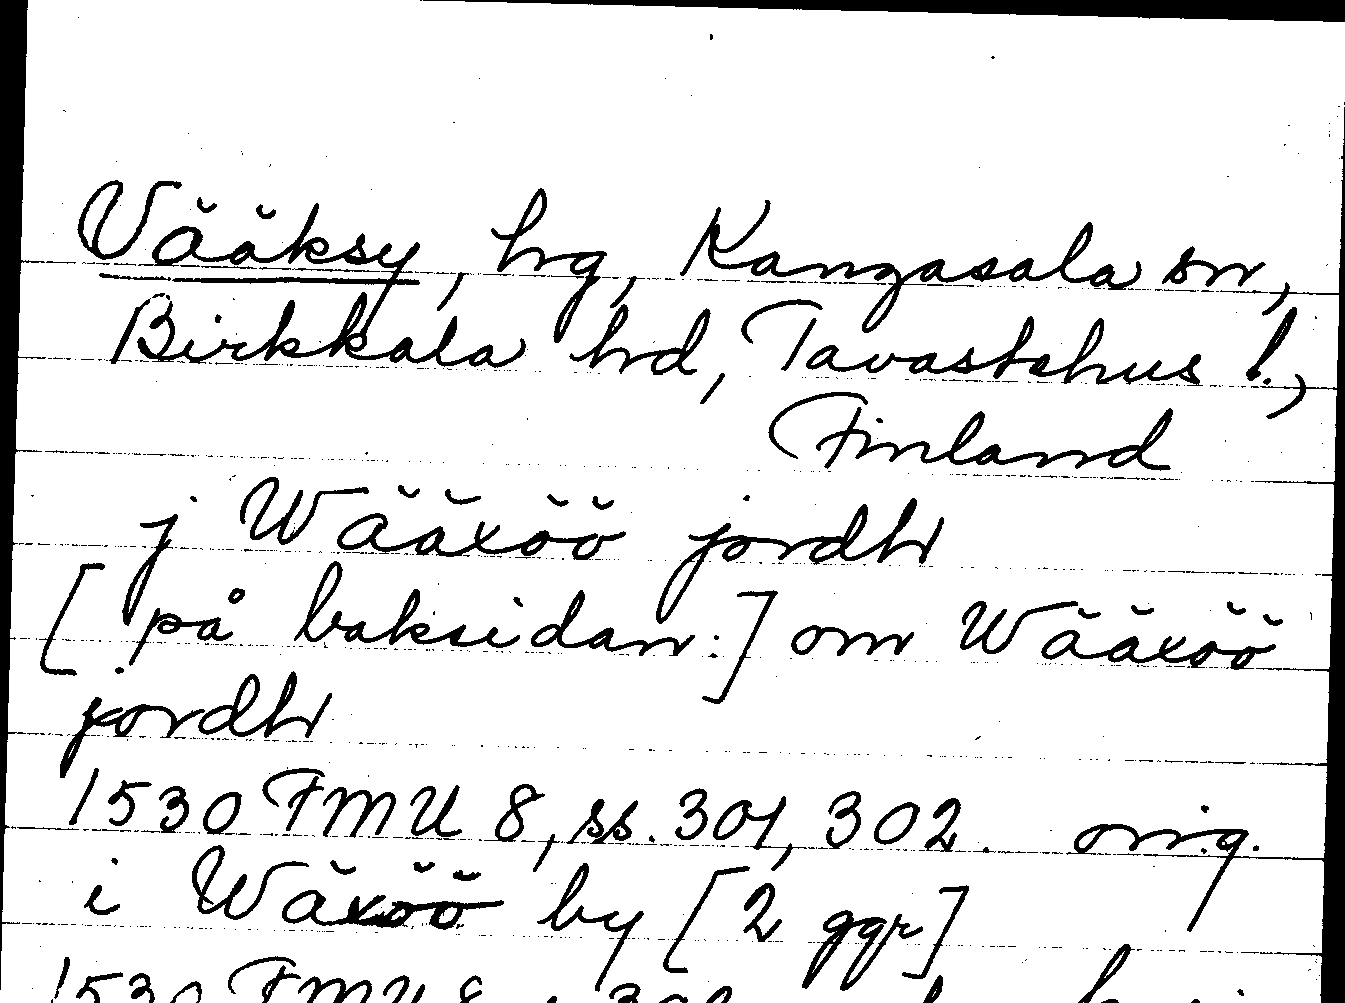 Vääksy, hg, Kangasala sn,
Birkkala hd, Tavastehus l.,
Finland
j Wääxöö jordh
[på baksidan:] om Wääxöö
jordh
1530 FMU 8, ss. 301, 302. orig.
i Wäxöö by [2 ggr]
1530 FMU 8